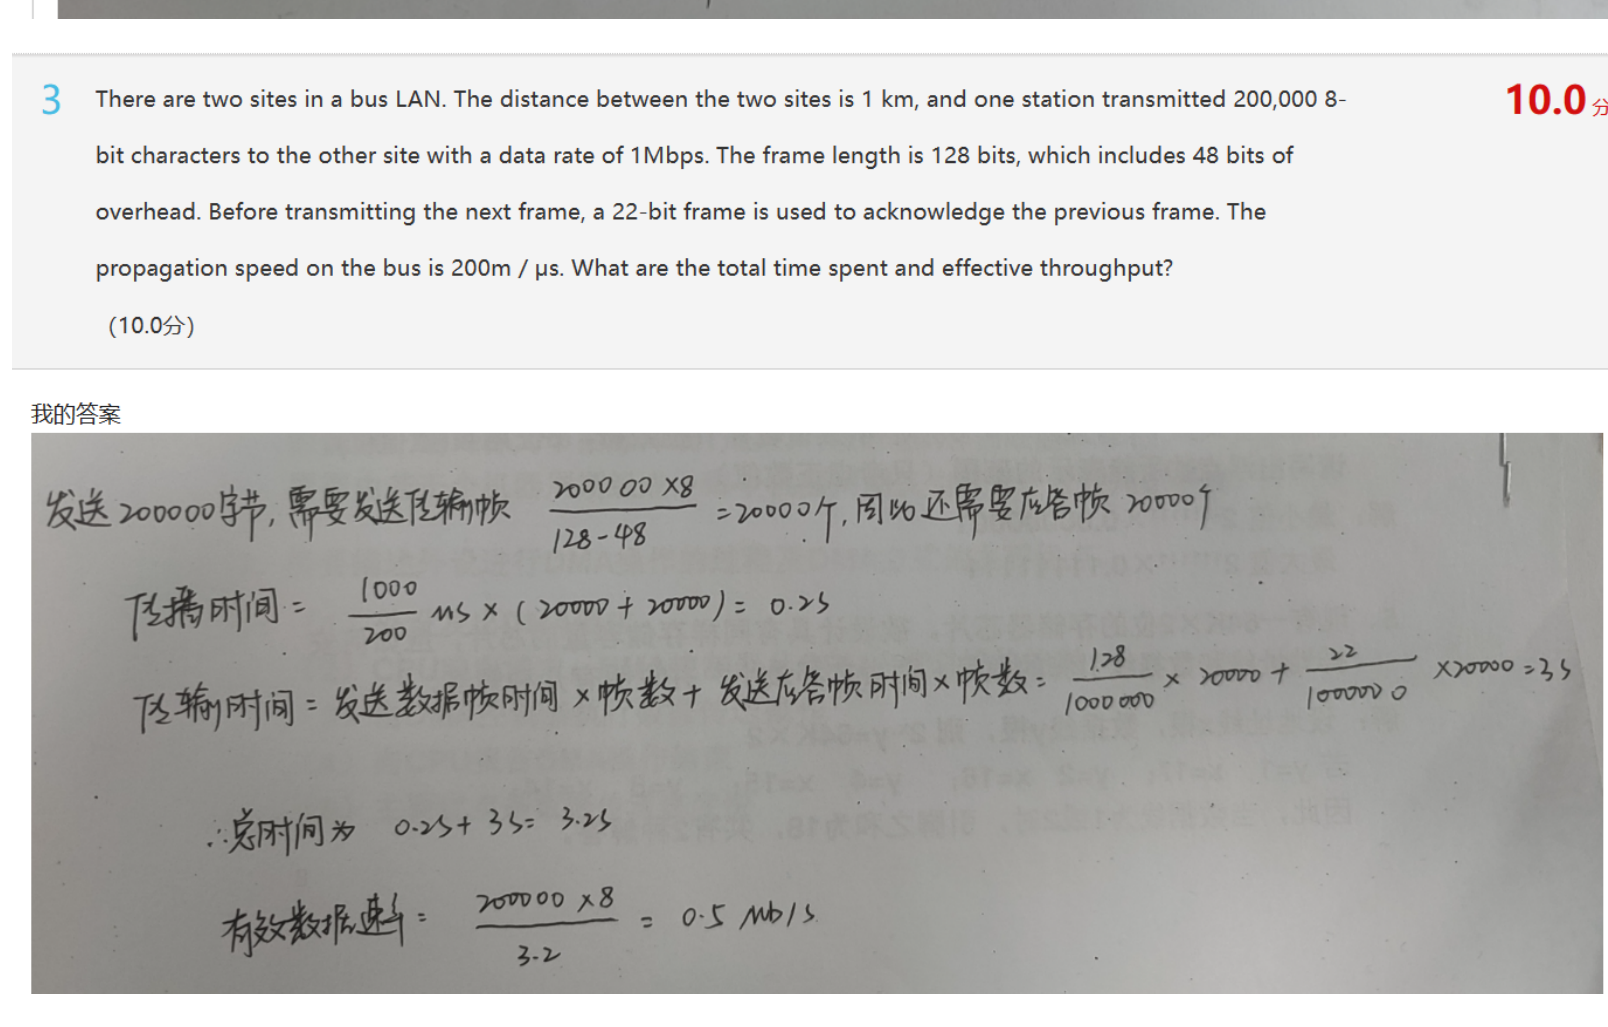 3 There are two sites in a bus LAN. The distance between the two sites is 1 km, and one station transmitted 200,000 8- 10.0 分
bit characters to the other site with a data rate of 1Mbps. The frame length is 128 bits, which includes 48 bits of
overhead. Before transmitting the next frame, a 22-bit frame is used to acknowledge the previous frame. The
propagation speed on the bus is 200m / μs. What are the total time spent and effective throughput?
(10.0分)
我的答案
发送200000字节,需要发送传输帧 200000×8/128-48 =20000个,因此还需要应答帧 20000个
传播时间= 1000/200 us × (20000+20000)= 0.2s
传输时间=发送数据帧时间×帧数+发送应答帧时间×帧数= 128/1000000 × 20000 + 22/1000000 ×20000=3s
∴总时间为 0.2s+ 3s= 3.2s
有效数据速率= 200000×8/3.2 = 0.5 Mb/s